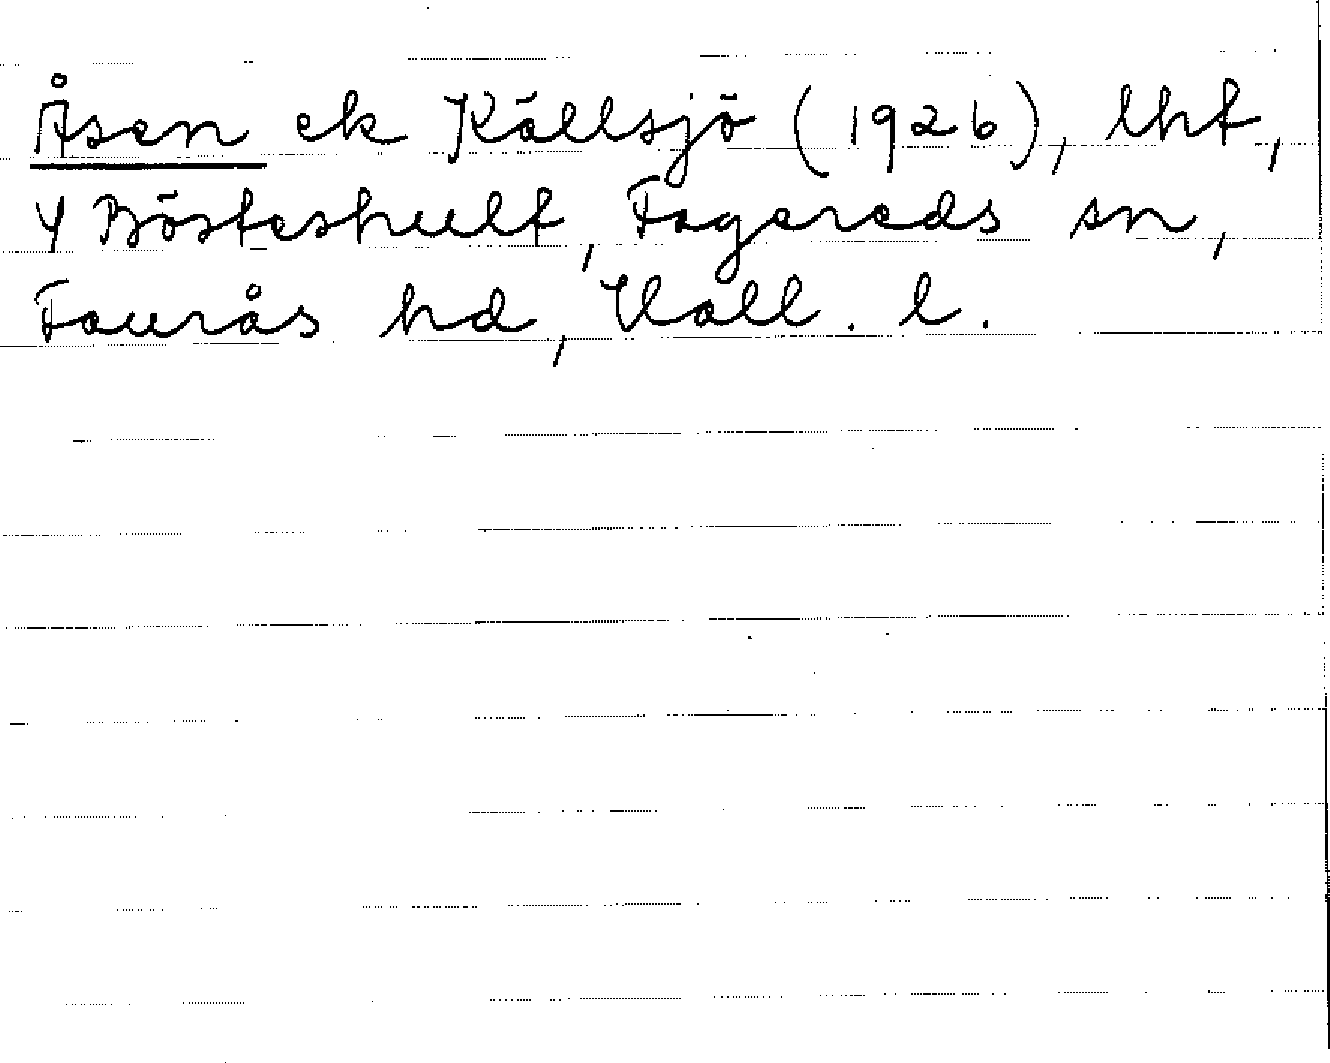 Åsen ek Källsjö (1926), lht,
4 Bösteshult, Fagereds sn,
Faurås hd, Hall. l.